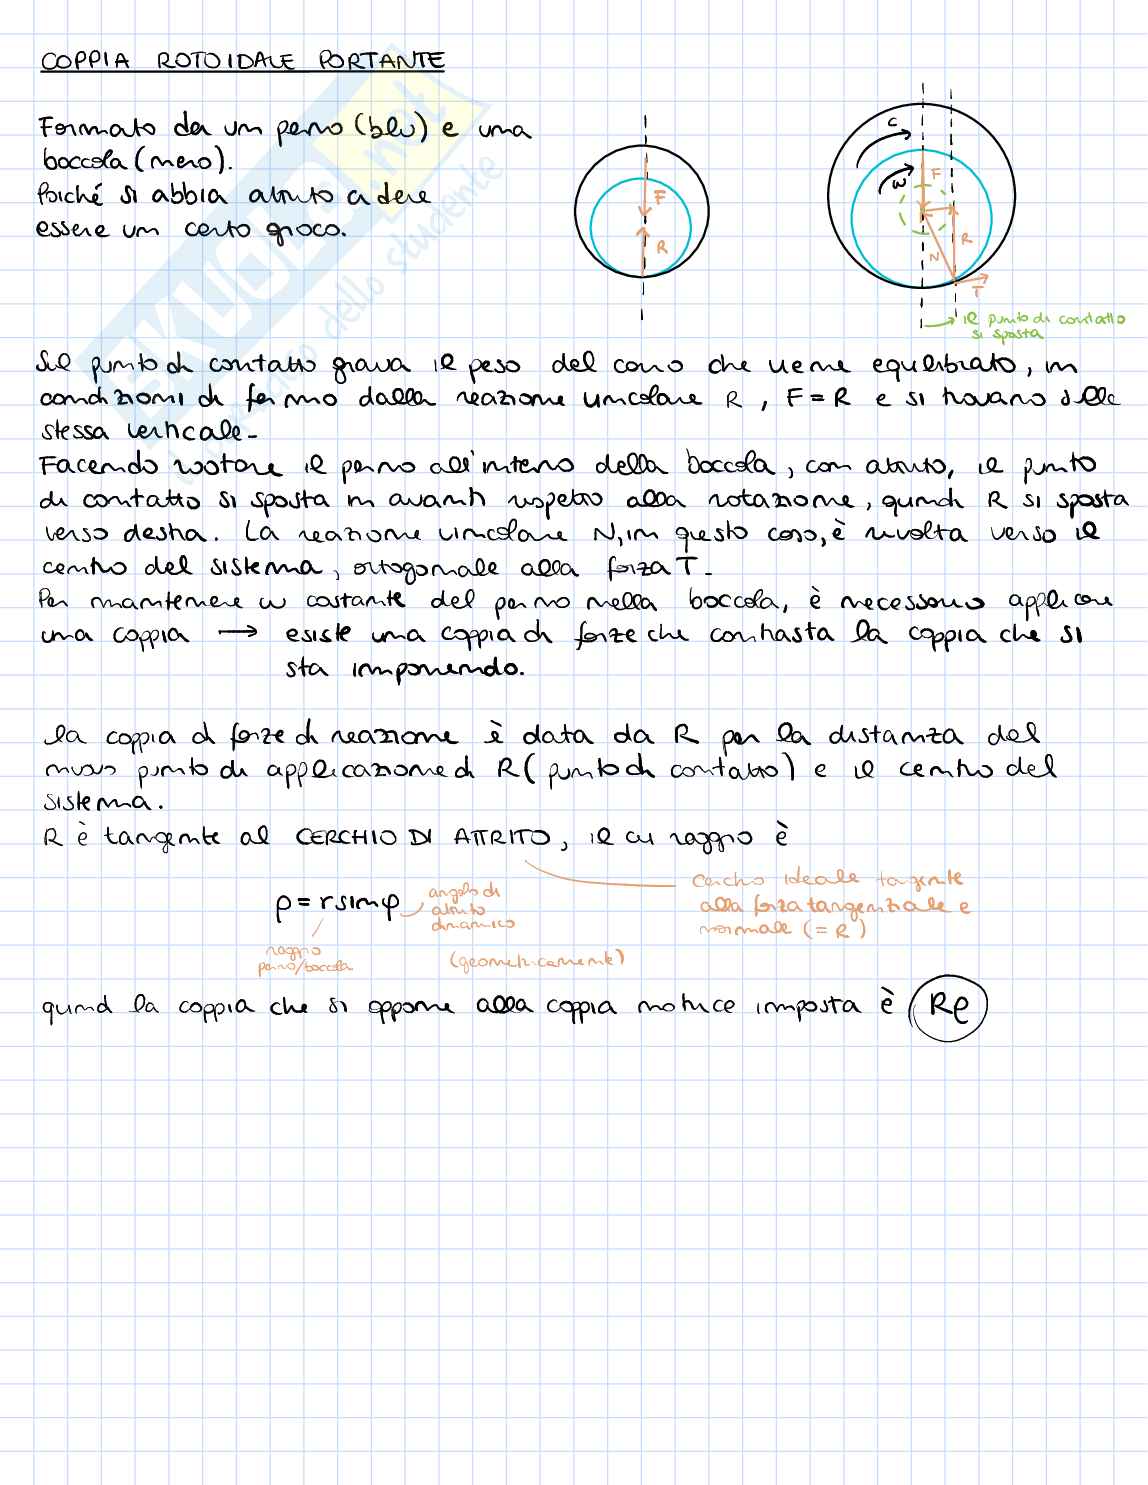 COPPIA ROTOIDALE PORTANTE
Formato da un perno (blu) e una
boccola (nero).
Poiché si abbia attrito c deve
essere un certo gioco.
F
R
C
W
F
R
N
T
il punto di contatto
si sposta
Sul punto di contatto grava il peso del corpo che viene equilibrato, in
condizioni di fermo dalla reazione vincolare R, F=R e si trovano sulla
stessa verticale.
Facendo ruotare il perno all'interno della boccola, con attrito, il punto
di contatto si sposta in avanti rispetto alla rotazione, quindi R si sposta
verso destra. La reazione vincolare N, in questo caso, è rivolta verso il
centro del sistema, ortogonale alla forza T.
Per mantenere w costante del perno nella boccola, è necessario applicare
una coppia → esiste una coppia di forze che contrasta la coppia che si
sta imponendo.
la coppia di forze di reazione è data da R per la distanza del
nuovo punto di applicazione di R (punto di contatto) e il centro del
sistema.
R è tangente al CERCHIO DI ATTRITO, il cui raggio è
cerchio ideale tangente
alla forza tangenziale e
normale (= R)
ρ = r sin φ
angolo di
attrito
dinamico
raggio
perno/boccola
(geometricamente)
quindi la coppia che si oppone alla coppia motrice imposta è Rρ
SKUOLA.net
dello studente